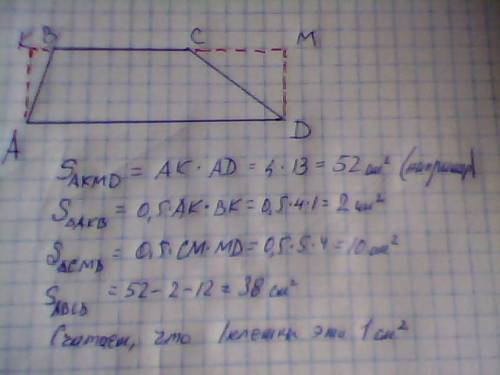 K B C M
A D
S AKMD = AK · AD = 4 · 13 = 52 см² (например)
S ΔAKB = 0,5 · AK · BK = 0,5 · 4 · 1 = 2 см²
S ΔCMD = 0,5 · CM · MD = 0,5 · 5 · 4 = 10 см²
S ABCD = 52 - 2 - 12 = 38 см²
Считаем, что 1 клетка это 1 см²